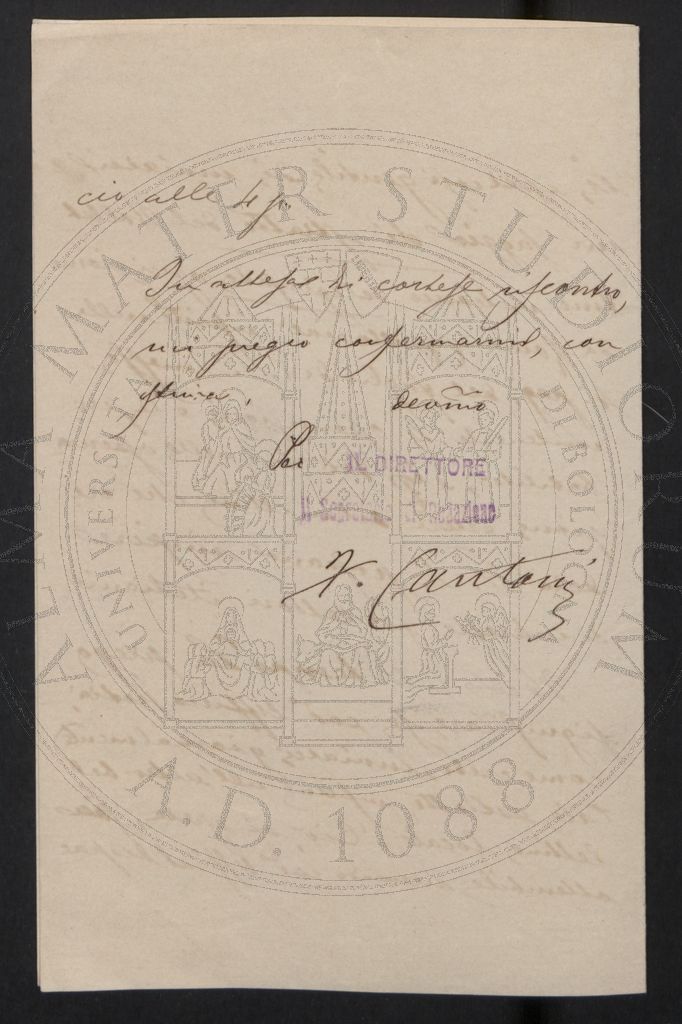 cio alle 4 p.
In attesa di cortese riscontro,
mi pregio confermarmi, con
stima, devmo
Per IL DIRETTORE
Il Segretario di Redazione
F. Cantoni
ALMA MATER STUDIORUM
UNIVERSITÀ DI BOLOGNA
A.D. 1088